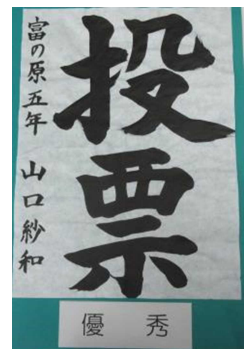 投票
富の原五年 山口紗和
優秀